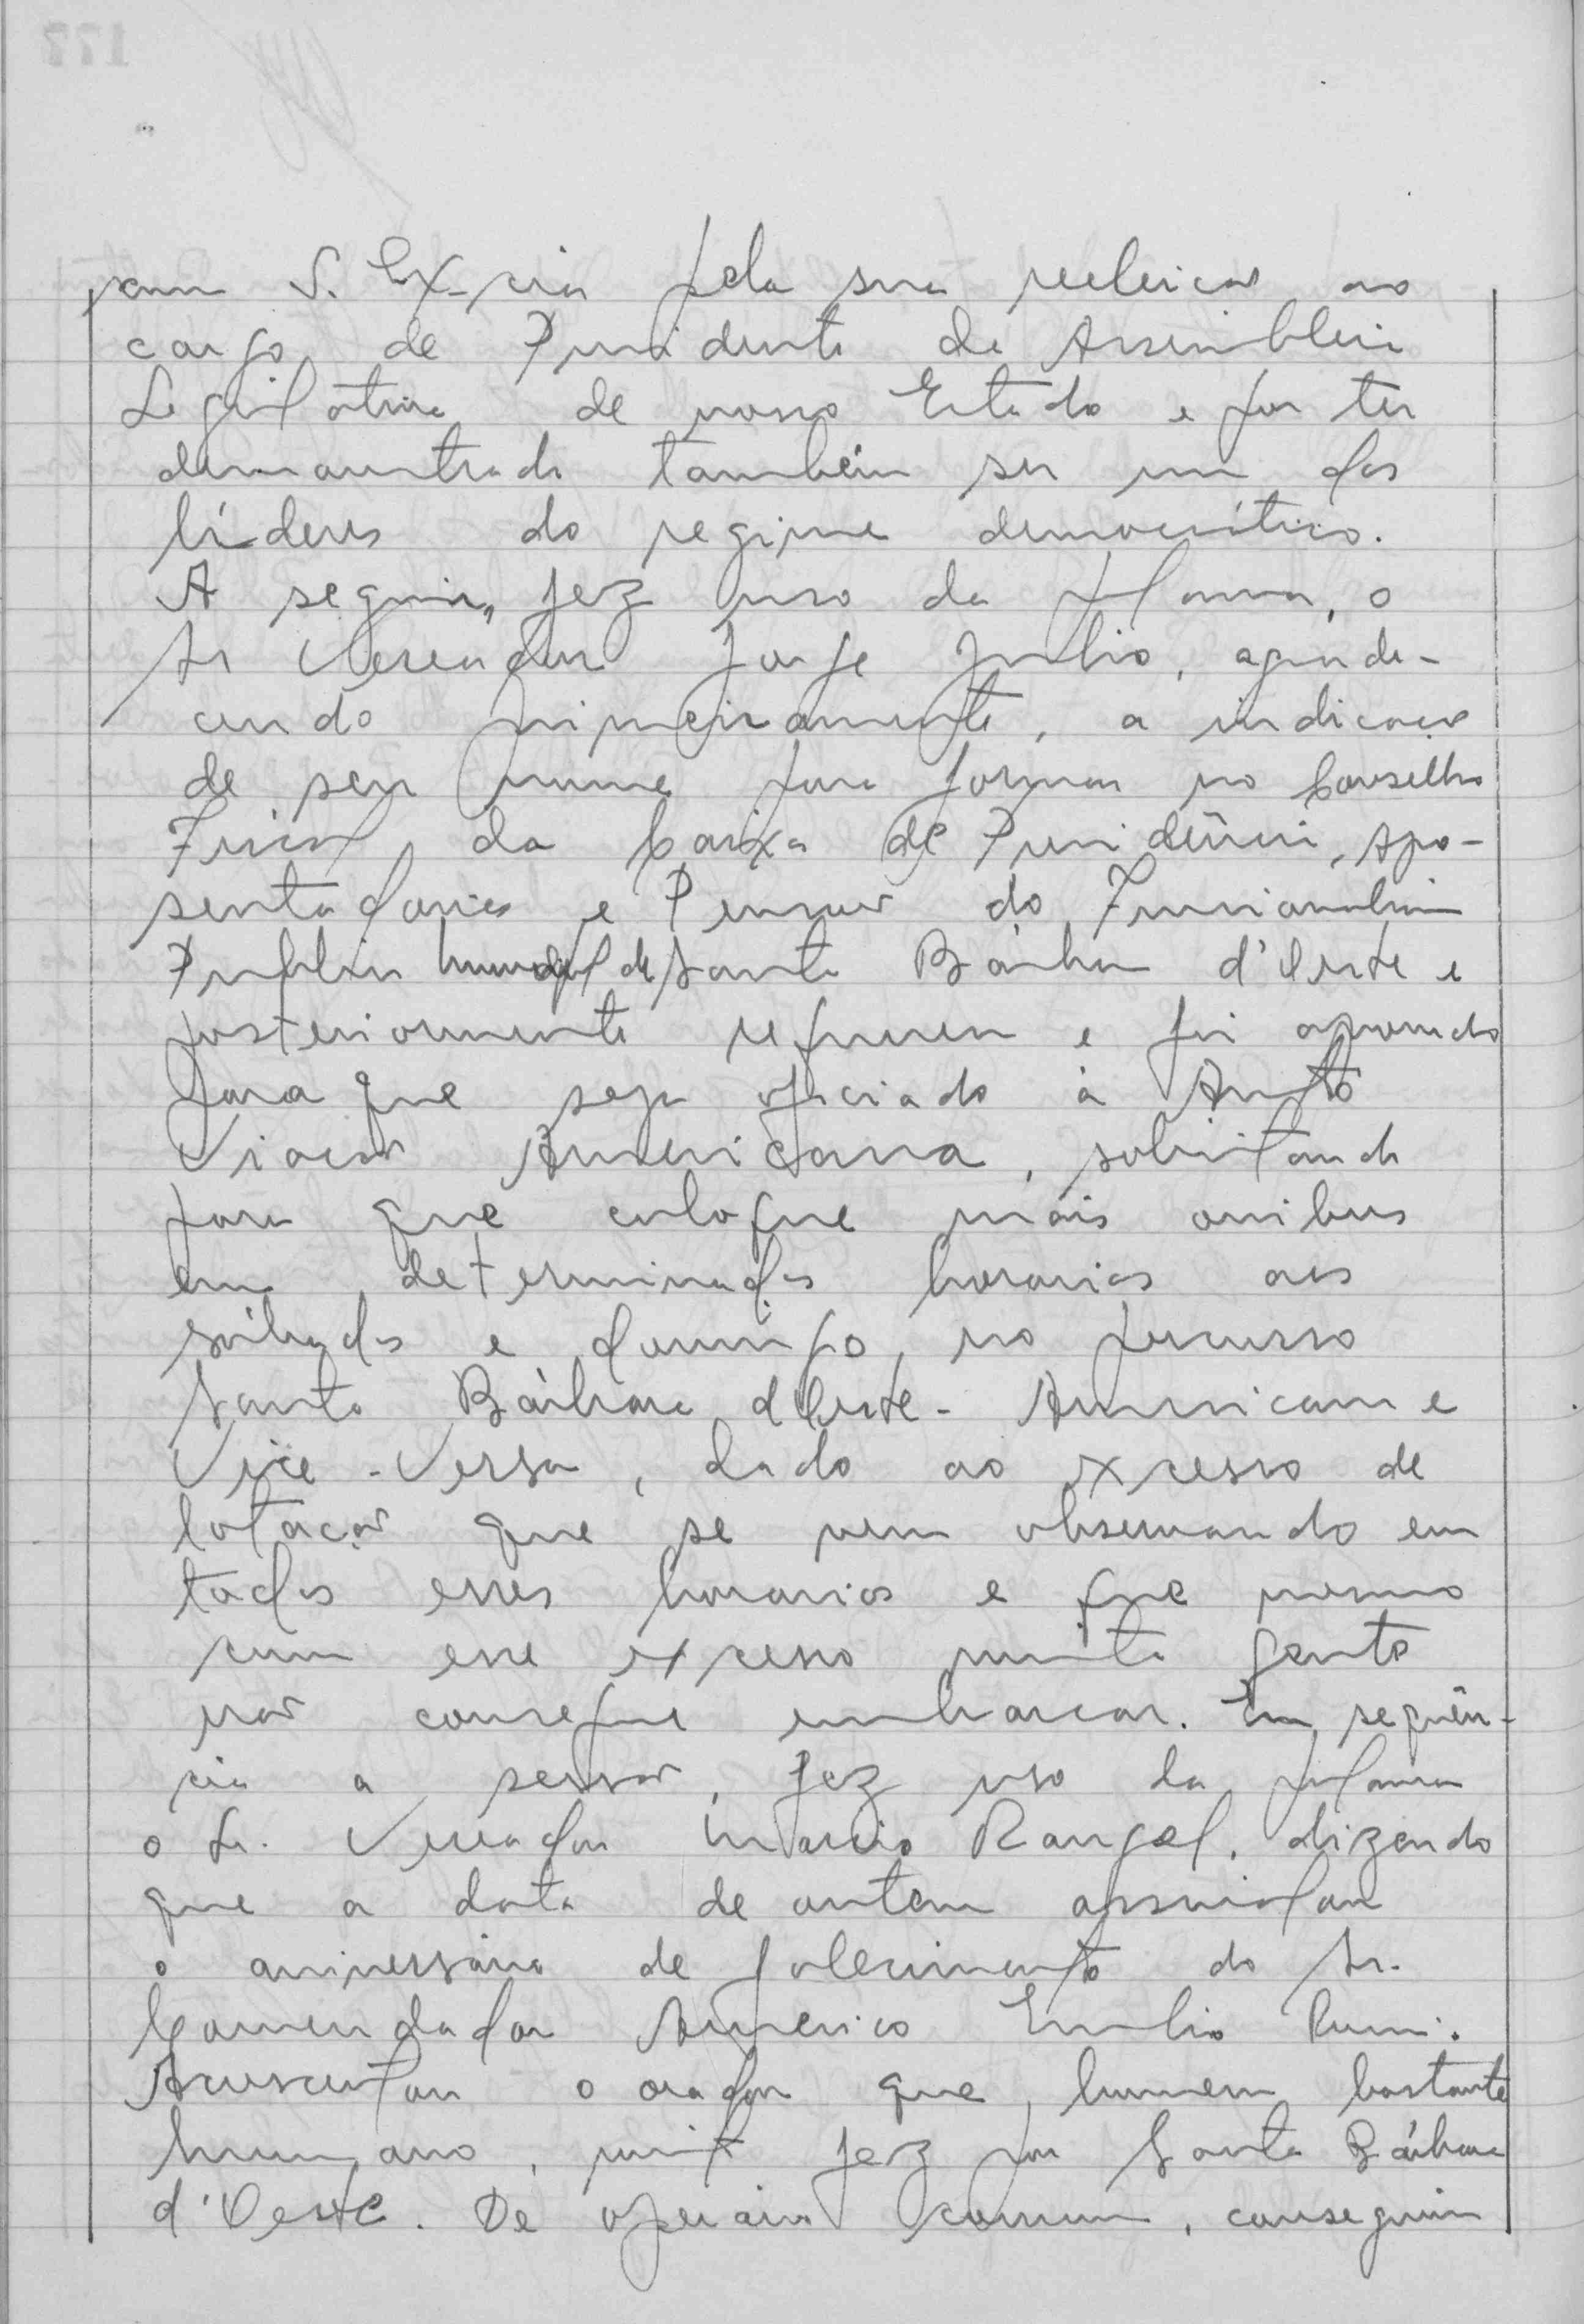 com S. Ex-cia pela sua reeleição ao
cargo de Presidente da Assembleia
Legislativa de nosso Estado e por ter
demonstrado também ser um dos
líderes do regime democrático.
A seguir, fez uso da palavra, o
Sr Vereador Jorge Julio, agrade-
cendo primeiramente, a indicação
de seu nome para formar no Conselho
Fiscal da Caixa de Previdência, Apo-
sentadorias e Pensão do Funcionalismo
Publico Municipal de Santa Bárbara d'Oeste e
posteriormente requereu e foi aprovado
para que seja oficiado à Auto
Viação Americana, solicitando
para que coloque mais onibus
em determinados horarios aos
sábados e domingo, no percurso
Santa Bárbara d'Oeste - Americana e
Vice-Versa, dado ao excesso de
lotação que se vem observando em
todos esses horarios e que mesmo
com esse excesso muita gente
não consegue embarcar. Em sequên-
cia a sessão, fez uso da palavra
o Sr. Vereador Marcio Rangel, dizendo
que a data de ontem assinalou
o aniversário de falecimento do Sr.
Comendador Americo Emilio Romi.
Acrescentou o orador que, homem bastante
humano, muito fez por Santa Bárbara
d'Oeste. De operário comum, conseguiu